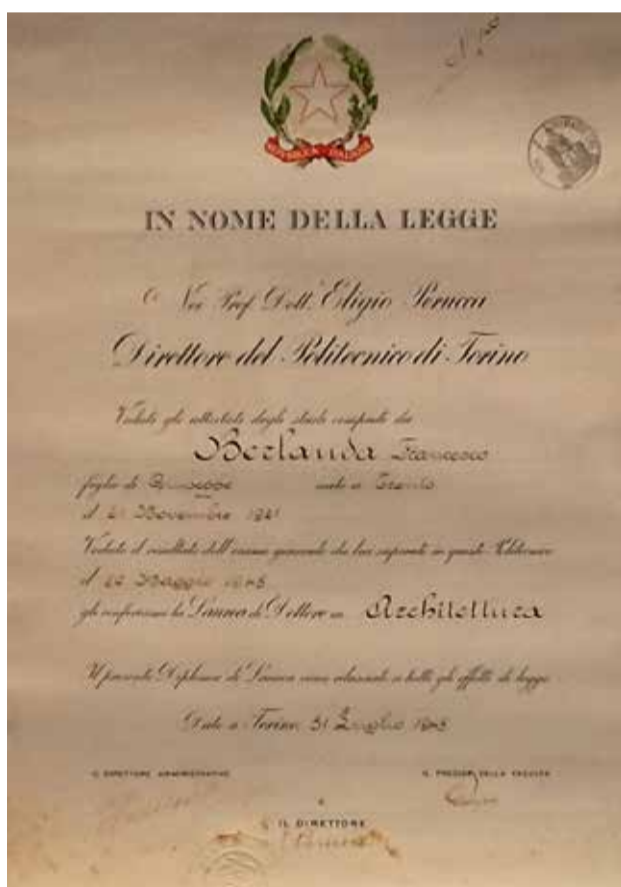 REPUBBLICA ITALIANA
IN NOME DELLA LEGGE
Noi Prof. Dott. Eligio Perucca
Direttore del Politecnico di Torino
Veduti gli attestati degli studi compiuti da
Berlanda Francesco
figlio di Giuseppe nato a Trento
il 21 Novembre 1921
Veduto il risultato dell'esame generale da lui superato in questo Politecnico
il Maggio
gli conferiamo la Laurea di Dottore in Architettura
Il presente Diploma di Laurea viene rilasciato a tutti gli effetti di legge
Dato a Torino 31 Luglio
IL DIRETTORE AMMINISTRATIVO
IL PRESIDE DELLA FACOLTÀ
IL DIRETTORE